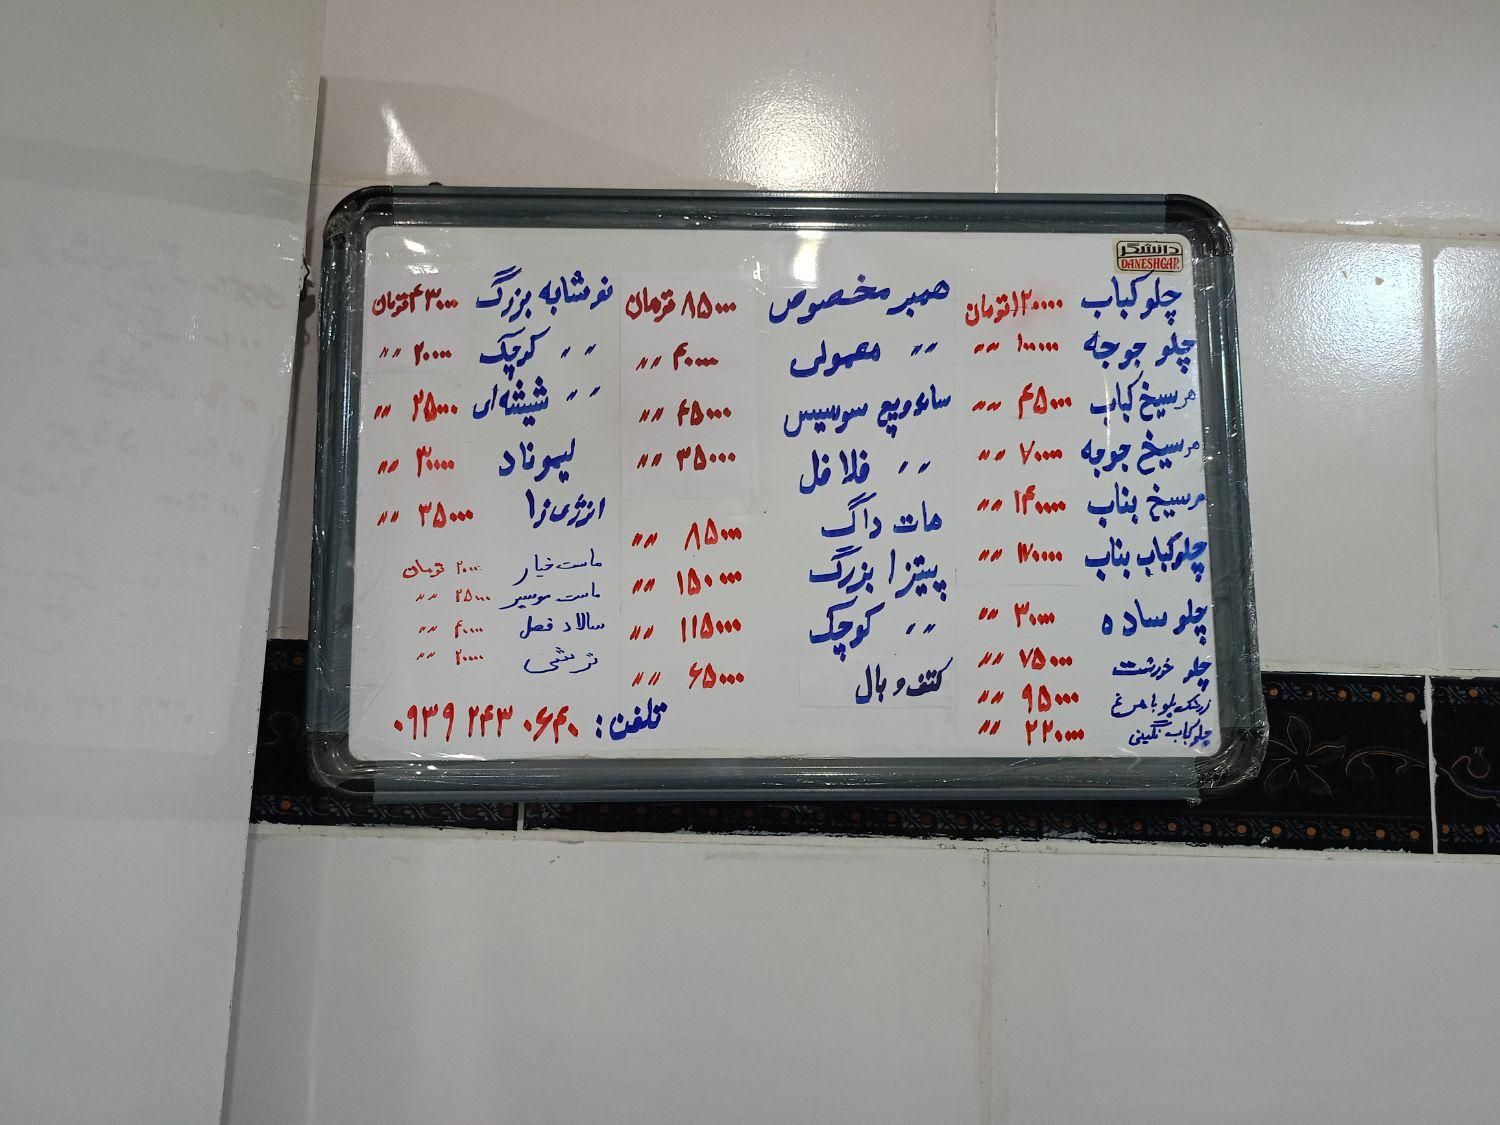 دانشگر
DANESHGAR
چلو کباب ۱۲۰۰۰۰ تومان
چلو جوجه ۱۰۰۰۰۰ 〃
هر سیخ کباب ۴۵۰۰۰ 〃
هر سیخ جوجه ۷۰۰۰۰ 〃
هر سیخ بناب ۱۴۰۰۰۰ 〃
چلو کباب بناب ۱۷۰۰۰۰ 〃
چلو ساده ۳۰۰۰۰ 〃
چلو خورشت ۷۵۰۰۰ 〃
زرشک پلو با مرغ ۹۵۰۰۰ 〃
چلو کباب نگینی ۲۲۰۰۰۰ 〃
همبر مخصوص ۸۵۰۰۰ تومان
〃 معمولی ۴۰۰۰۰ 〃
ساندویچ سوسیس ۴۵۰۰۰ 〃
〃 فلافل ۳۵۰۰۰ 〃
هات داگ ۸۵۰۰۰ 〃
پیتزا بزرگ ۱۵۰۰۰۰ 〃
〃 کوچک ۱۱۵۰۰۰ 〃
کتف و بال ۶۵۰۰۰ 〃
نوشابه بزرگ ۴۳۰۰۰ تومان
〃 کوچک ۲۰۰۰۰ 〃
〃 شیشه ای ۲۵۰۰۰ 〃
لیموناد ۳۰۰۰۰ 〃
انرژی زا ۳۵۰۰۰ 〃
ماست خیار ۲۰۰۰۰ تومان
ماست موسیر ۲۵۰۰۰ 〃
سالاد فصل ۴۰۰۰۰ 〃
ترشی ۲۰۰۰۰ 〃
تلفن : ۰۹۳۹ ۲۴۳ ۰۶۴۰